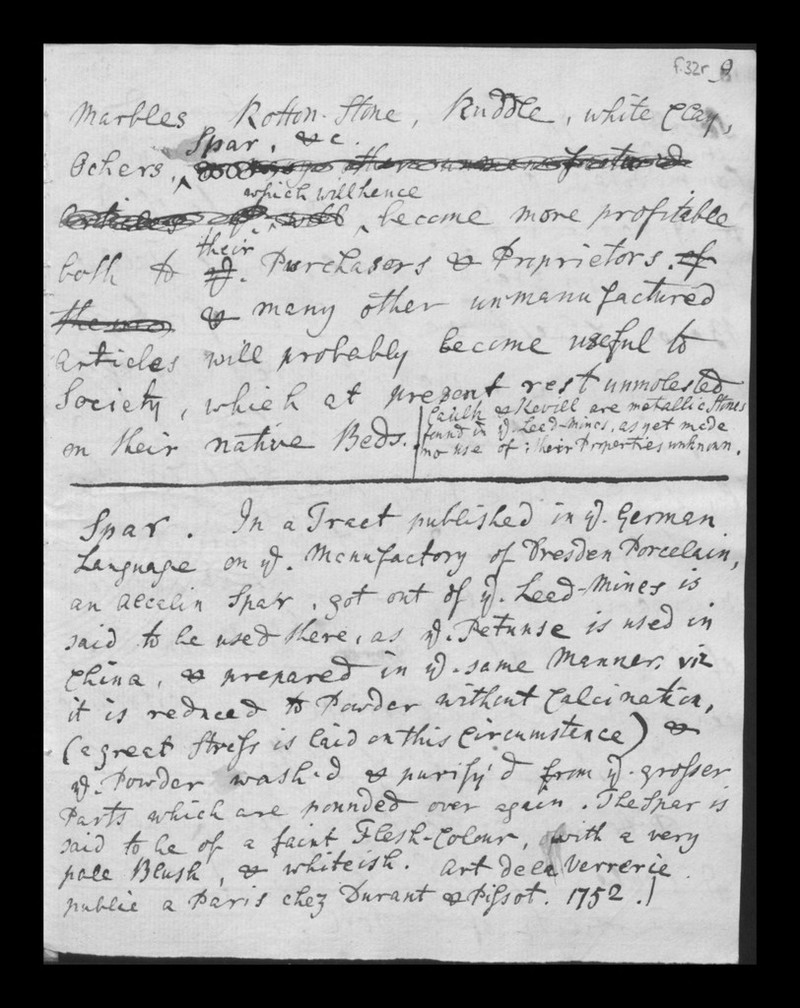 f.32r 9
Marbles Rotton-Stone, Ruddle, white Clay,
Spar, &c.
Ochers,
which will hence
become more profitable
their
both to ye. Purchasers & Proprietors. of
them & many other unmanufactured
articles will probably become useful to
Society, which at present rest unmolested
on their native Beds.
Caulk & Kevill are metallic Stones
found in ye. Lead-Mines, as yet made
no use of; their Properties unknown.
Spar. In a Tract published in ye. German
Language on ye. Manufactory of Dresden Porcelain,
an alcalin Spar, got out of ye. Leed-Mines is
said to be used there, as ye. Petunse is used in
China, & prepared in ye. same Manner. viz
it is reduced to Powder without Calcination,
(a great Stress is laid on this Circumstance) &
ye. Powder wash'd & purify'd from ye. grosser
Parts which are pounded over again. The Spar is
said to be of a faint Flesh-Colour, with a very
pale Blush, & whiteish. Art de la Verrerie.
publié a Paris chez Durant & Pissot. 1752.